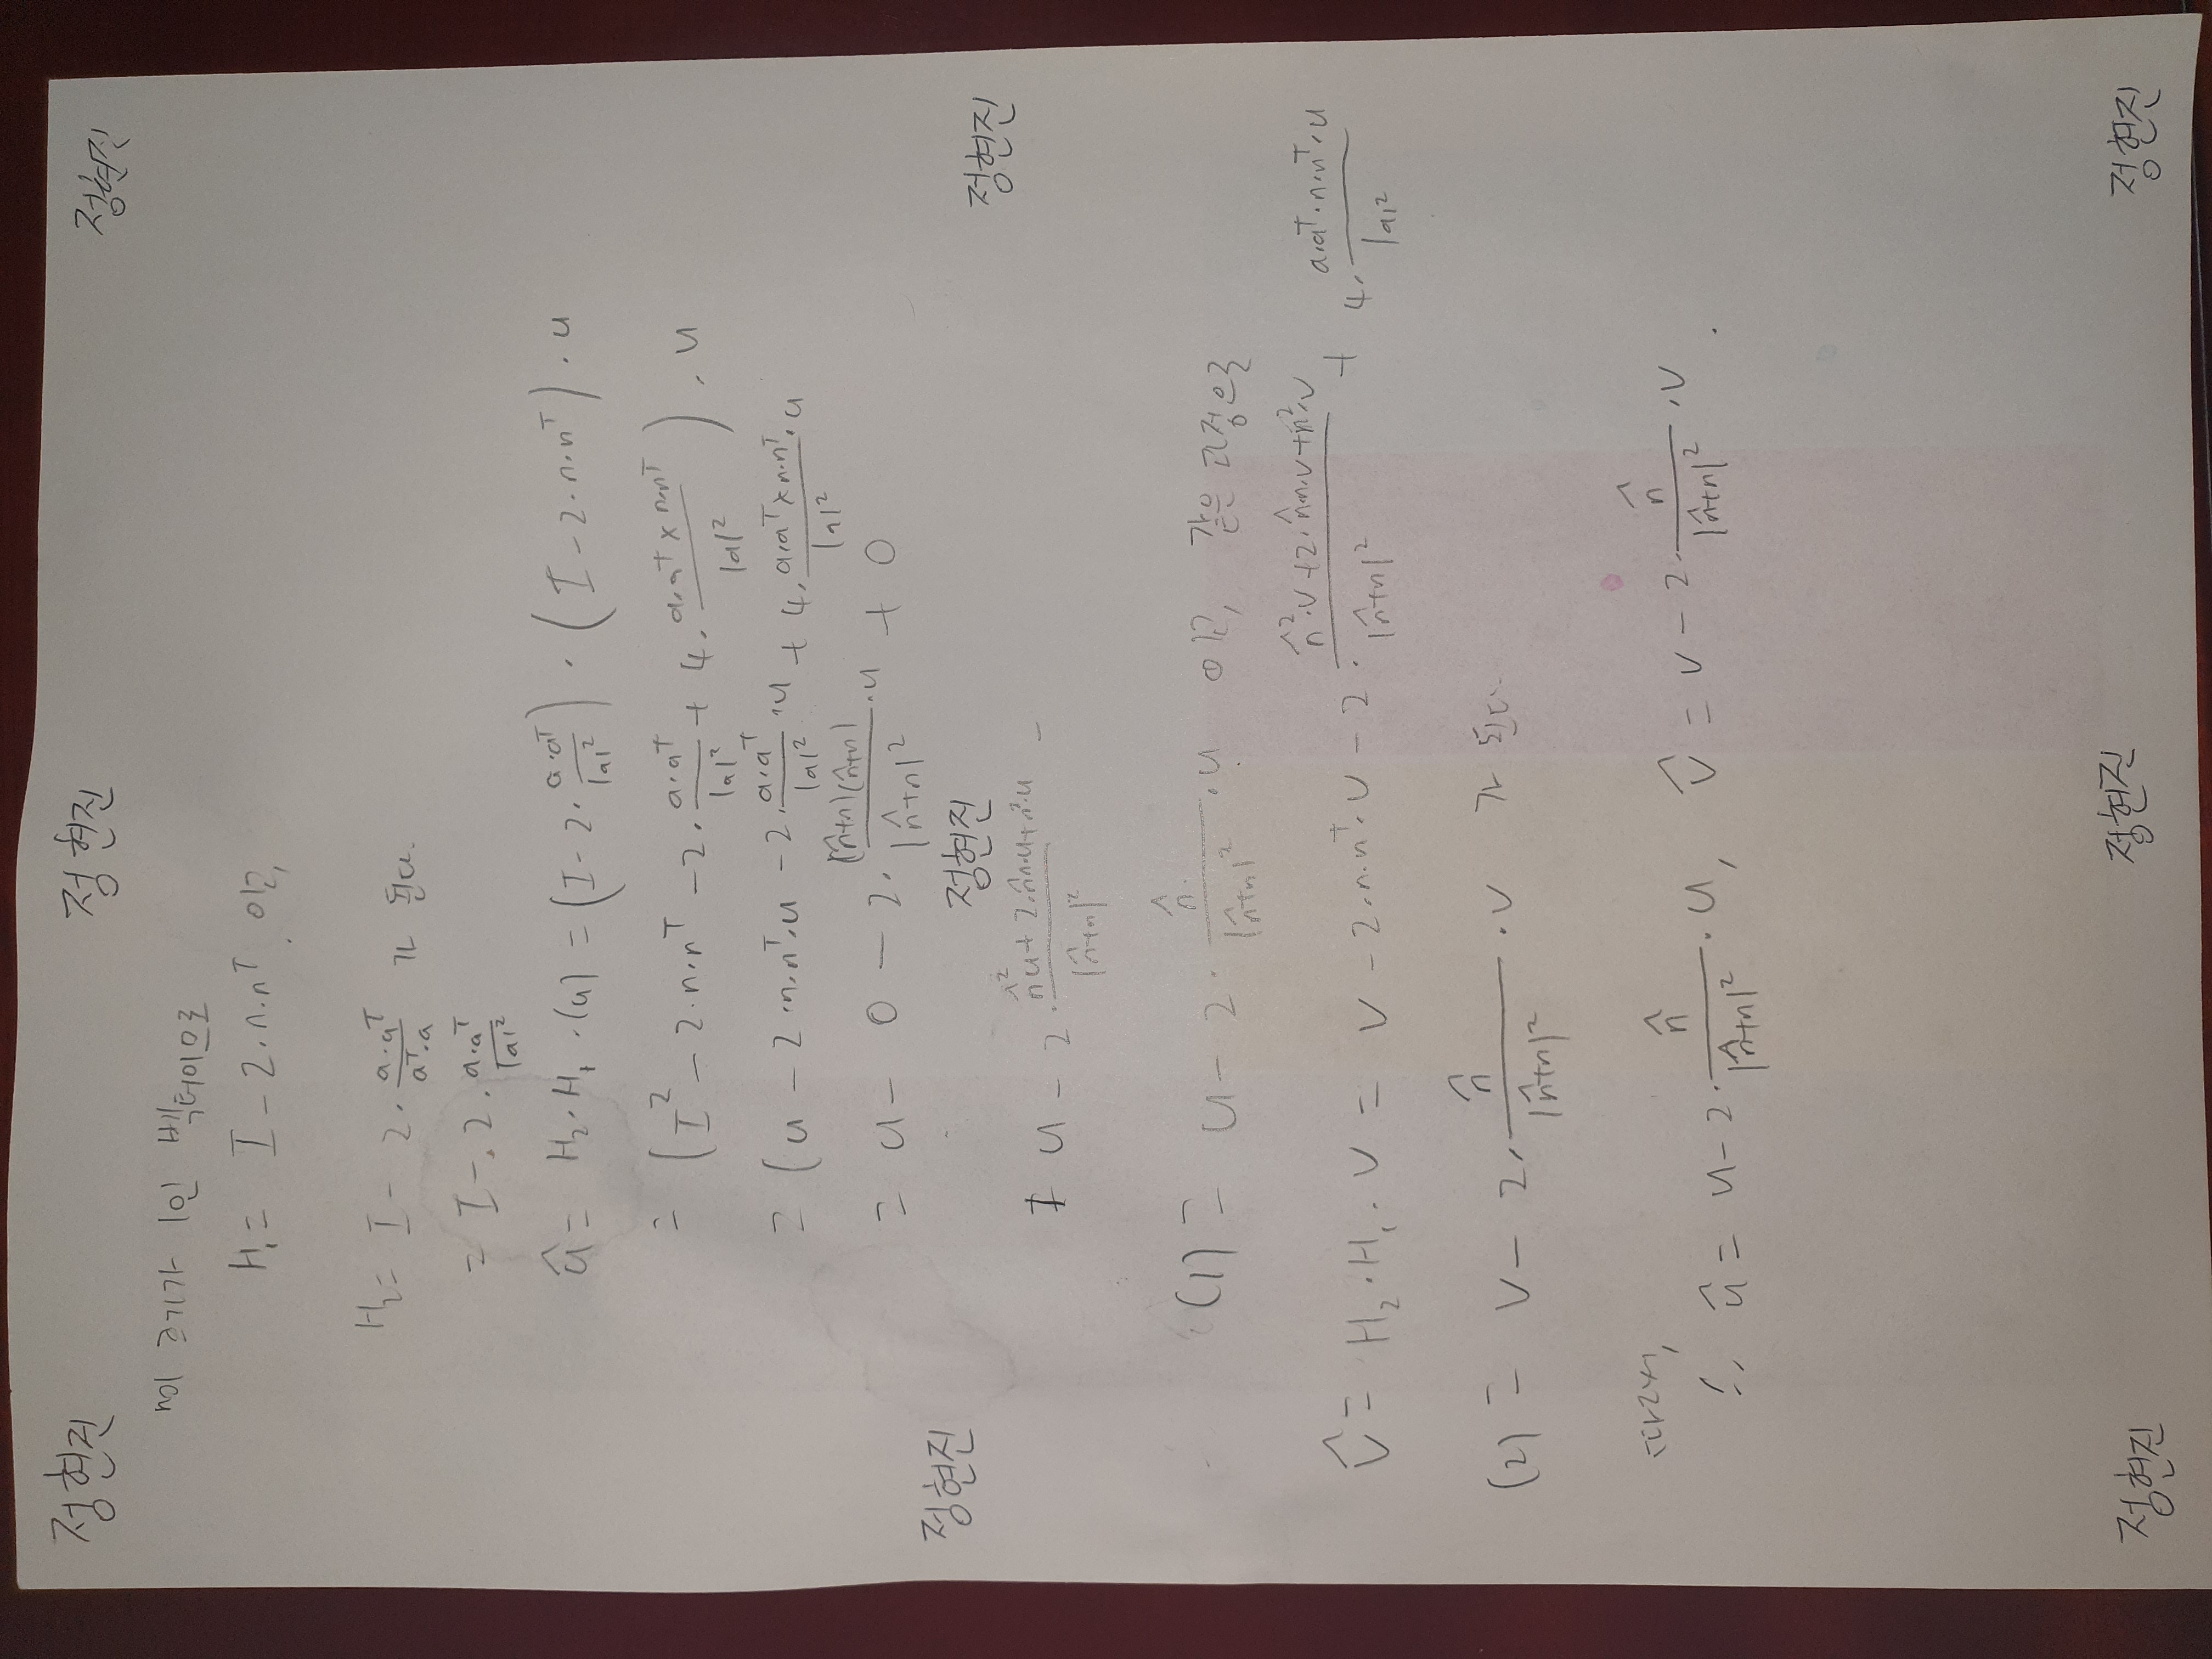 정현진 정현진 정현진
n이 크기가 1인 벡터이으로
H₁ = I - 2·n·nᵀ 이고,
H₂ = I - 2· a·aᵀ / aᵀ·a 가 된다.
= I - 2· a·aᵀ / |a|²
û = H₂·H₁·(u) = (I - 2· a·aᵀ / |a|²) · (I - 2·n·nᵀ)·u
= (I² - 2·n·nᵀ - 2· a·aᵀ / |a|² + 4· a·aᵀ × n·nᵀ / |a|²)·u
= (u - 2·n·nᵀ·u - 2· a·aᵀ / |a|² ·u + 4· a·aᵀ × n·nᵀ·u / |a|²
= u - 0 - 2· (n̂+n)(n̂+n) / |n̂+n|² ·u + 0
정현진 정현진 정현진
= u - 2· n̂²u + 2·n̂n·u + n²·u / |n̂+n|² -
(1) = u - 2· n̂ / |n̂+n|² ·u 이고, 같은 과정으로
v̂ = H₂·H₁·v = v - 2·n·nᵀ·v - 2· n̂²·v + 2·n̂n·v + n²·v / |n̂+n|² + 4· a·aᵀ·n·nᵀ·u / |a|²
(2) = v - 2· n̂ / |n̂+n|² ·v 가 된다.
따라서,
∴ û = u - 2· n̂ / |n̂+n|² ·u, v̂ = v - 2· n̂ / |n̂+n|² ·v .
정현진 정현진 정현진